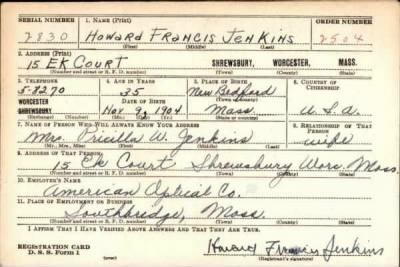 SERIAL NUMBER 1. NAME (Print) ORDER NUMBER
2830 HOWARD FRANCIS JENKINS 2504
(First) (Middle) (Last)
2. ADDRESS (Print)
15 EK COURT SHREWSBURY, WORCESTER, MASS.
(Number and street or R. F. D. number) (Town) (County) (State)
3. TELEPHONE 4. AGE IN YEARS 5. PLACE OF BIRTH 6. COUNTRY OF CITIZENSHIP
5-8270 35 New Bedford
WORCESTER DATE OF BIRTH (Town or county)
SHREWSBURY Nov 9, 1904 Mass. U.S.A.
(Exchange) (Number) (Mo.) (Day) (Yr.) (State or country)
7. NAME OF PERSON WHO WILL ALWAYS KNOW YOUR ADDRESS 8. RELATIONSHIP OF THAT PERSON
Mrs. Pricilla W. Jenkins wife
(Mr., Mrs., Miss) (First) (Middle) (Last)
9. ADDRESS OF THAT PERSON
15 Ek Court Shrewsbury Worc. Mass.
(Number and street or R. F. D. number) (Town) (County) (State)
10. EMPLOYER'S NAME
American Optical Co.
11. PLACE OF EMPLOYMENT OR BUSINESS
Southbridge, Mass.
(Number and street or R. F. D. number) (Town) (County) (State)
I AFFIRM THAT I HAVE VERIFIED ABOVE ANSWERS AND THAT THEY ARE TRUE.
REGISTRATION CARD
D. S. S. Form 1 Howard Francis Jenkins
(Registrant's signature)